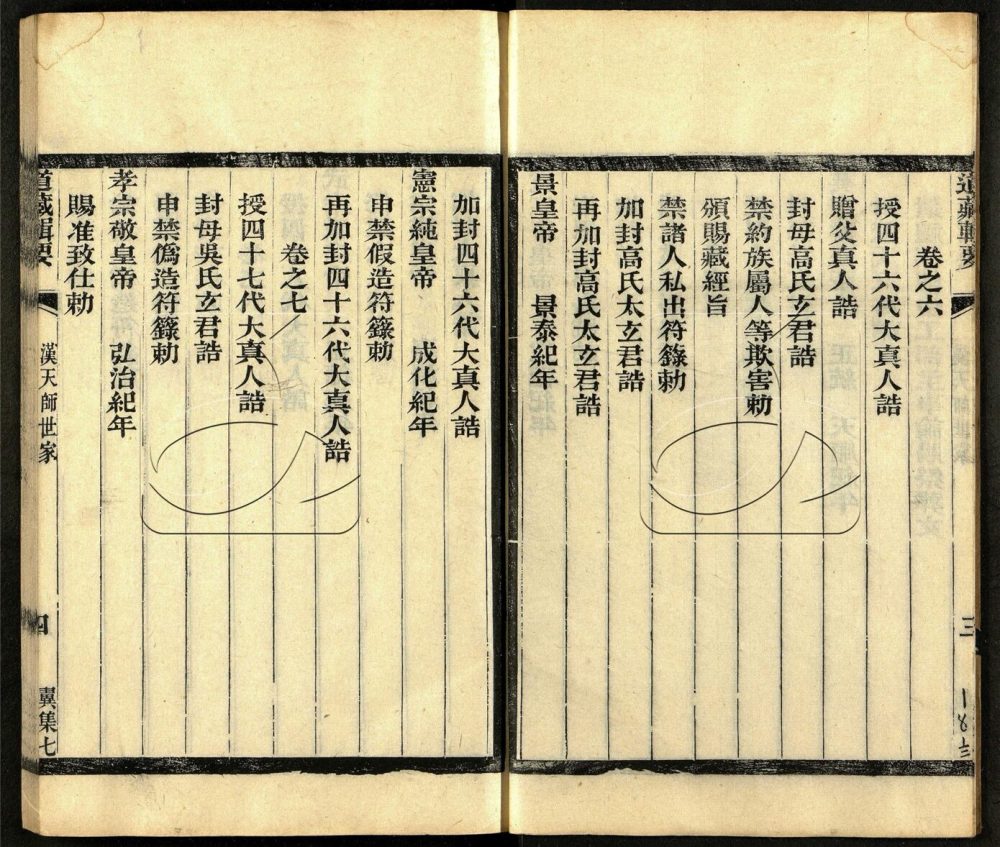 道藏輯要
三
卷之六
授四十六代大真人誥
贈父真人誥
封母高氏玄君誥
禁約族屬人等欺害勅
頒賜藏經旨
禁諸人私出符籙勅
加封高氏太玄君誥
再加封高氏太玄君誥
景皇帝 景泰紀年
加封四十六代大真人誥
憲宗純皇帝 成化紀年
申禁假造符籙勅
再加封四十六代大真人誥
卷之七
授四十七代大真人誥
封母吳氏玄君誥
申禁偽造符籙勅
孝宗敬皇帝 弘治紀年
賜准致仕勅
道藏輯要 漢天師世家 四 翼集七